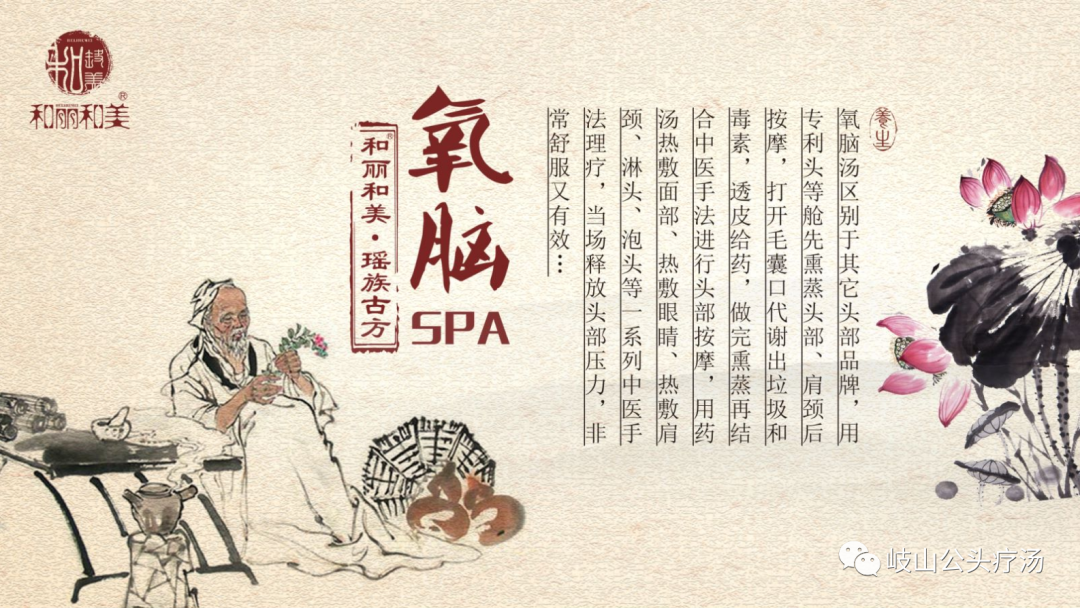 和丽和美®
氧脑
SPA
和丽和美·瑶族古方
養生
氧脑汤区别于其它头部品牌，用
专利头等舱先熏蒸头部、肩颈后
按摩，打开毛囊口代谢出垃圾和
毒素，透皮给药，做完熏蒸再结
合中医手法进行头部按摩，用药
汤热敷面部、热敷眼睛、热敷肩
颈、淋头、泡头等一系列中医手
法理疗，当场释放头部压力，非
常舒服又有效…
岐山公头疗汤